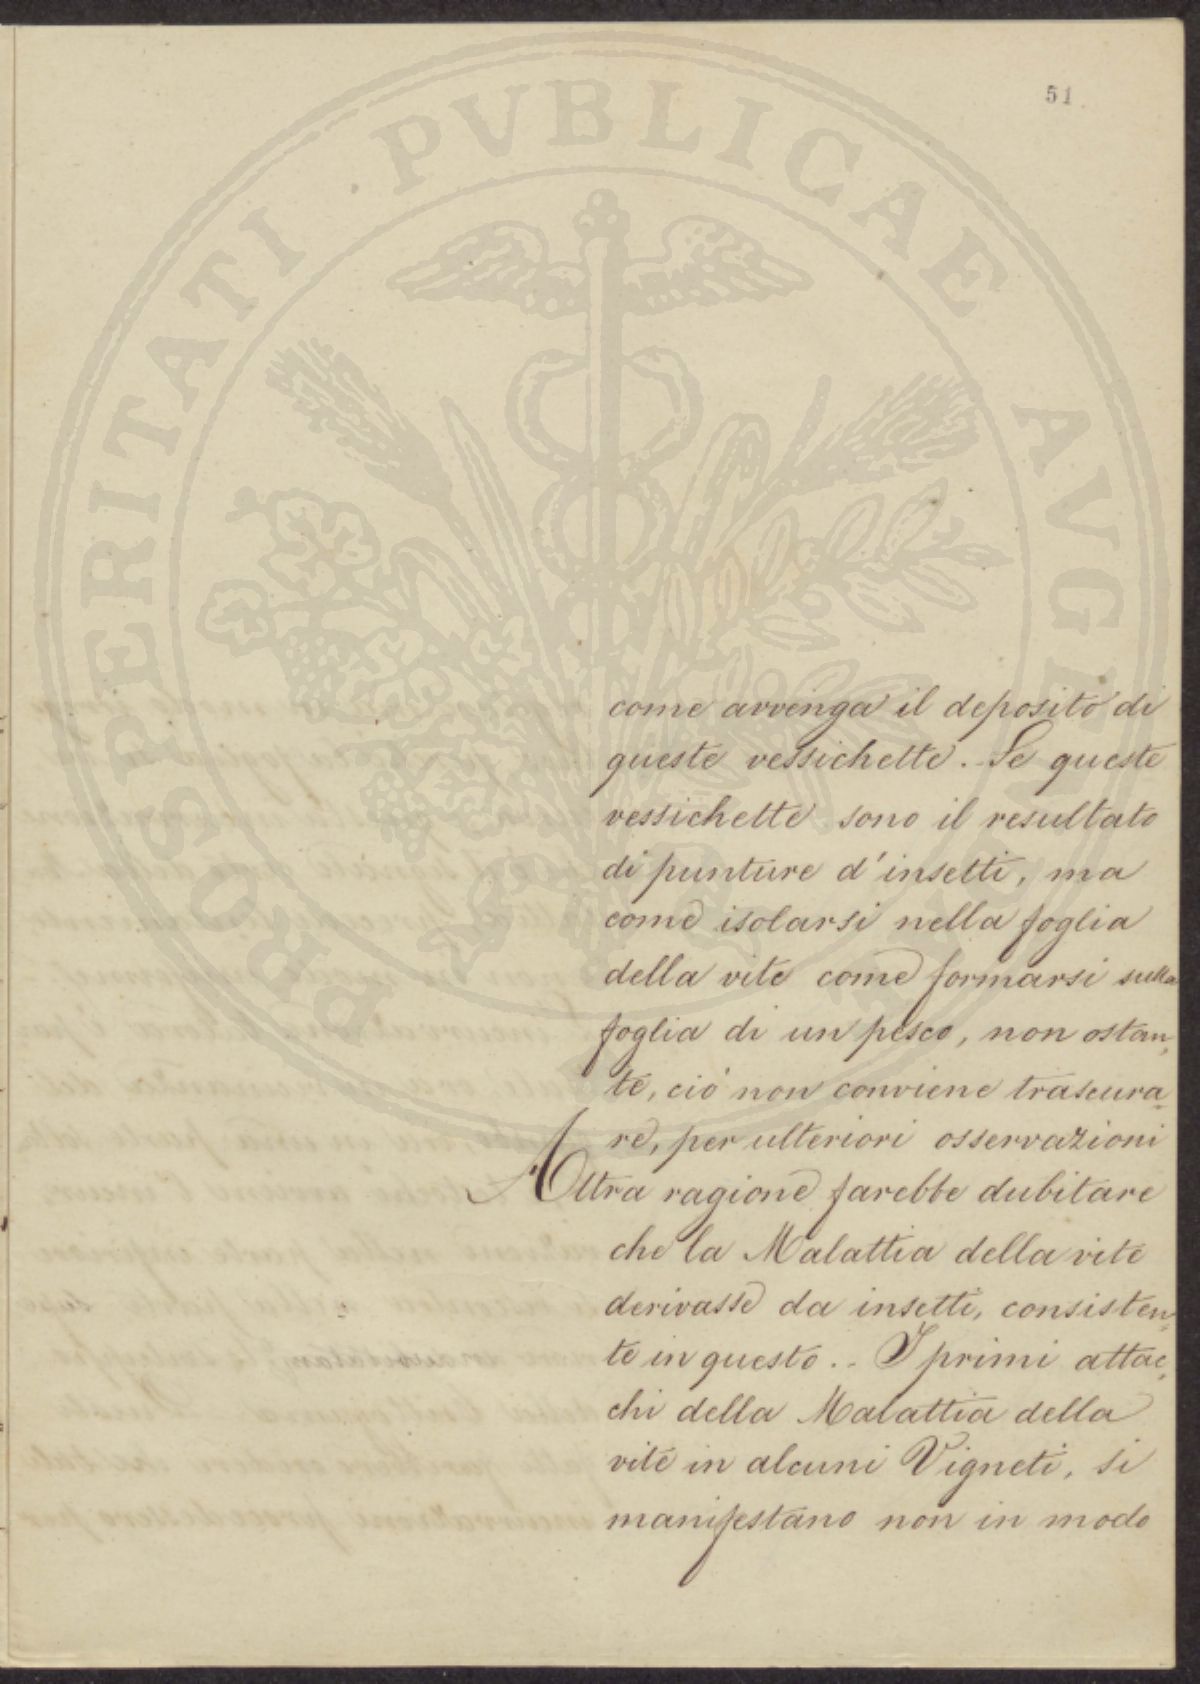 51.
PROSPERITATI · PVBLICAE AVGENDAE
come avvenga il deposito di
queste vessichette. Se queste
vessichette sono il resultato
di punture d'insetti, ma
come isolarsi nella foglia
della vite come formarsi sulla
foglia di un pesco, non ostan,
te, ciò non conviene trascura=
re, per ulteriori osservazioni
Altra ragione farebbe dubitare
che la Malattia della vite
derivasse da insetti, consisten=
te in questo.. I primi attac,
chi della Malattia della
vite in alcuni Vigneti, si
manifestano non in modo